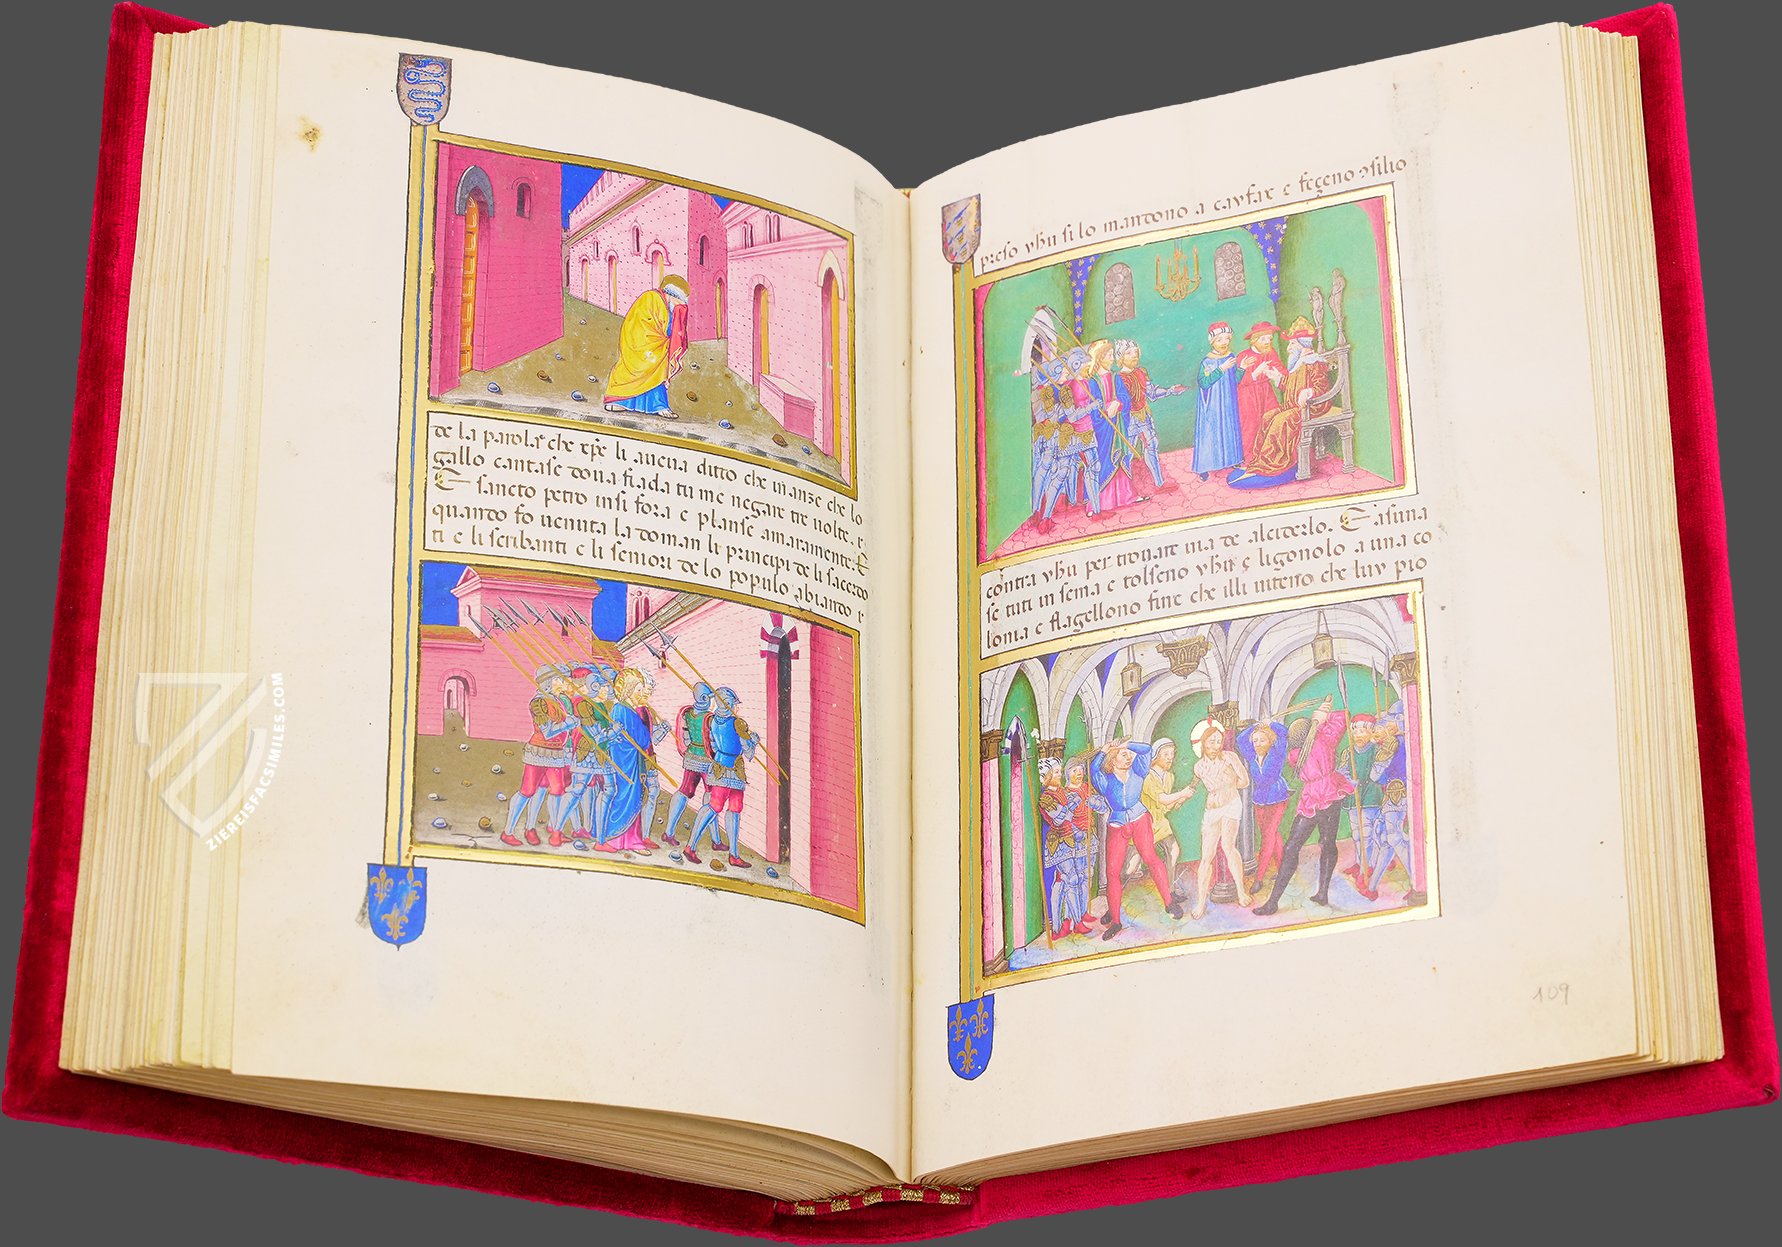 de la parola che xp̄e li aueua ditto che inanze che lo
gallo cantase doua fiada tu me negare tre uolte. e
E sancto petro insi fora e planse amaramente. E
quando fo uenuta la doman li principi de li sacerdo
ti e li scribanti e li seniori de lo populo abiando
preso yhu si lo mandono a cayfax e feceno ɔsilio
contra yhu per trouare uia de alciderlo. E asuna
se tuti insema e tolseno yhu e ligonolo a una co
lona e flagellono fine che illi uiteno che luy pio
109
ZIEREISFACSIMILES.COM